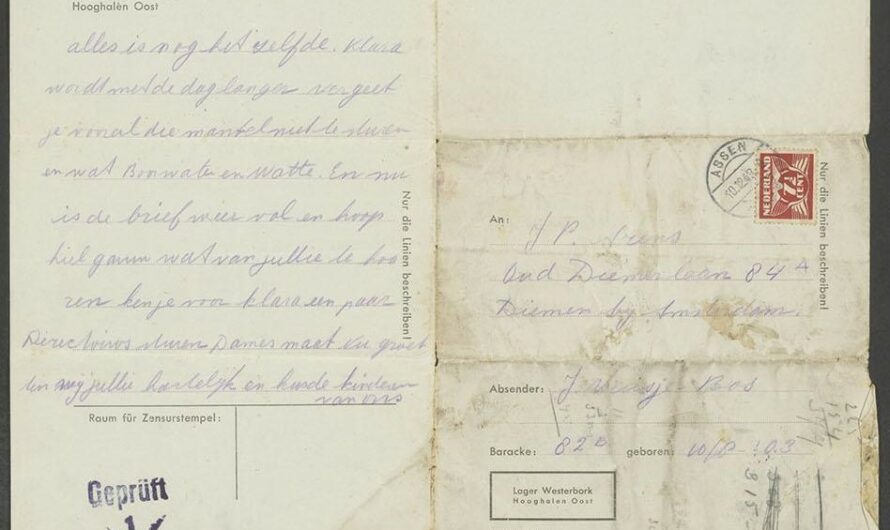 Hooghalen Oost
alles is nog het zelfde. Klara
wordt met de dag langer vergeet
je vooral die mantel niet te sturen
en wat Boorwater en Watte. En nu
is de brief weer vol en hoop
hiel gauw wat van jullie te hoo
ren ken je voor Klara een paar
Directoires sturen Dames maat Nu groet
en wij jullie hartelijk en kusde kinderen
van ons
Nur die Linien beschreiben!
Raum für Zensurstempel:
Geprüft
1
ASSEN
10.12.43
NEDERLAND
7½
CENT
Nur die Linien beschreiben!
An:
J P.
Oud Diemerlaan 84 A
Diemen by Amsterdam.
Absender: Bos
Baracke: 82 B geboren: 10/8 - 03
Lager Westerbork
Hooghalen Oost